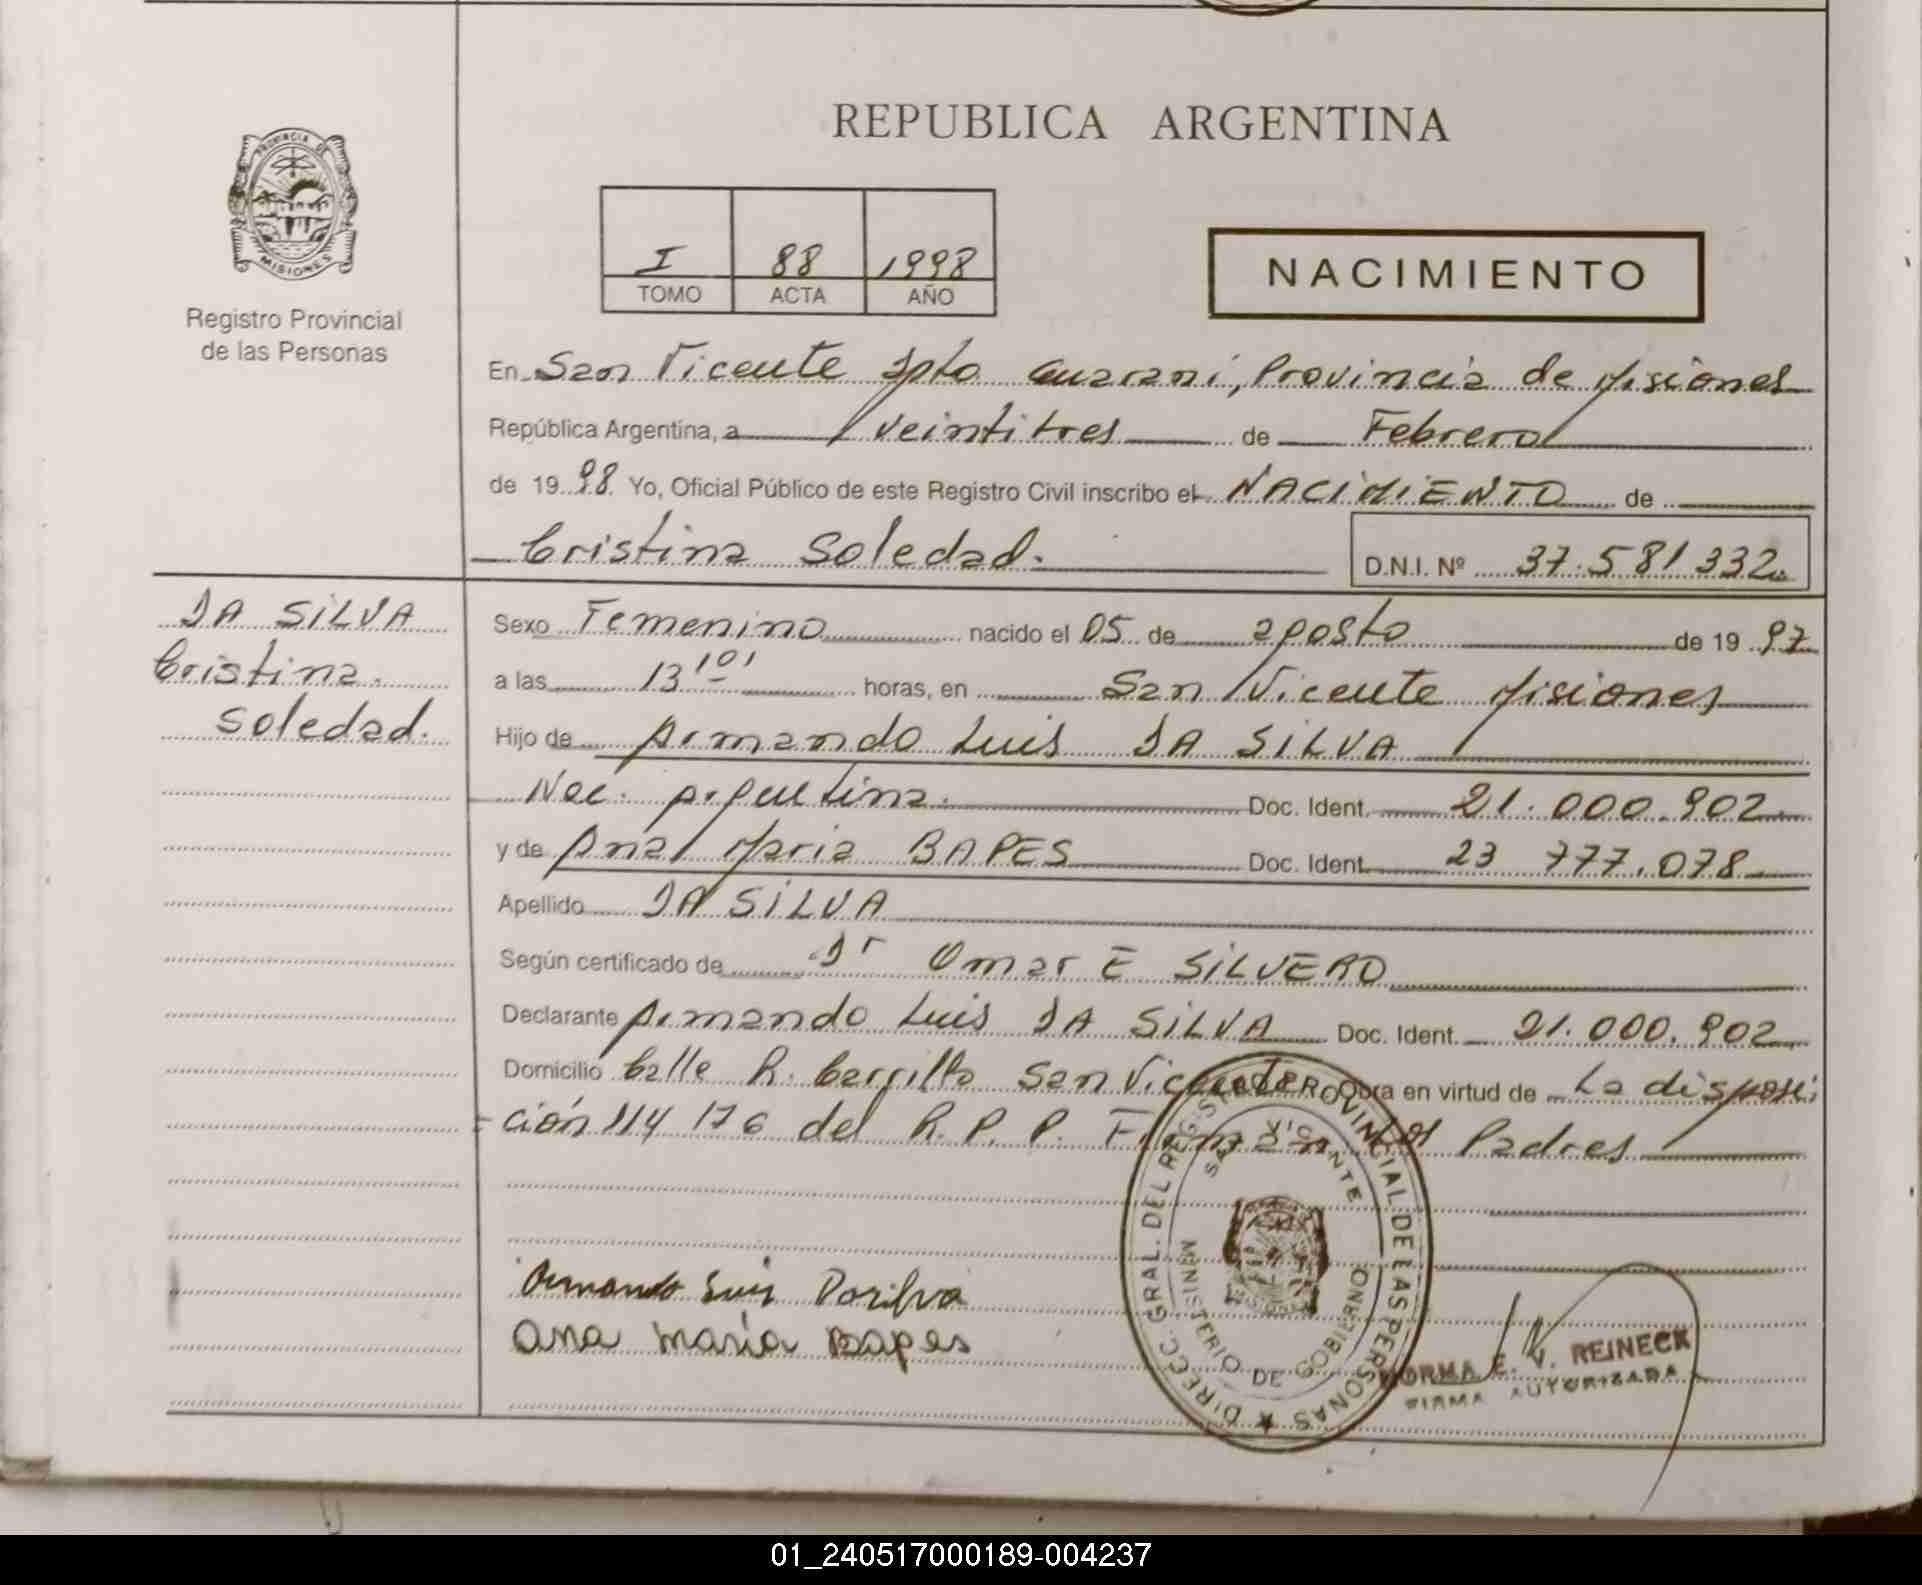 REPUBLICA ARGENTINA
PROVINCIA DE
MISIONES
Registro Provincial
de las Personas
I 88 1998
TOMO ACTA AÑO
NACIMIENTO
En San Vicente Dpto Guarani, Provincia de Misiones
República Argentina, a veintitres de Febrero
de 1998 Yo, Oficial Público de este Registro Civil inscribo el NACIMIENTO de
Cristina Soledad.
D.N.I. Nº 37.581332.
DA SILVA
Cristina.
Soledad.
Sexo Femenino nacido el 05 de agosto de 1997
a las 13 horas, en San Vicente Misiones
Hijo de Armando Luis DA SILVA
Nac. Argentina. Doc. Ident. 21.000.902.
y de Ana Maria BAPES Doc. Ident. 23 777.078
Apellido DA SILVA
Según certificado de Dr Omar E SILVERO
Declarante Armando Luis DA SILVA Doc. Ident. 21.000.902
Domicilio Calle R. Carrillo San Vicente Obra en virtud de La disposi
ción 114 176 del R.P.P. Firman Los Padres
Armando Luis Dasilva
Ana maría Bapes
DIRECC. GRAL. DEL REGISTRO PROVINCIAL DE LAS PERSONAS
SAN VICENTE
MINISTERIO DE GOBIERNO
NORMA E. V. REINECK
FIRMA AUTORIZADA
01_240517000189-004237